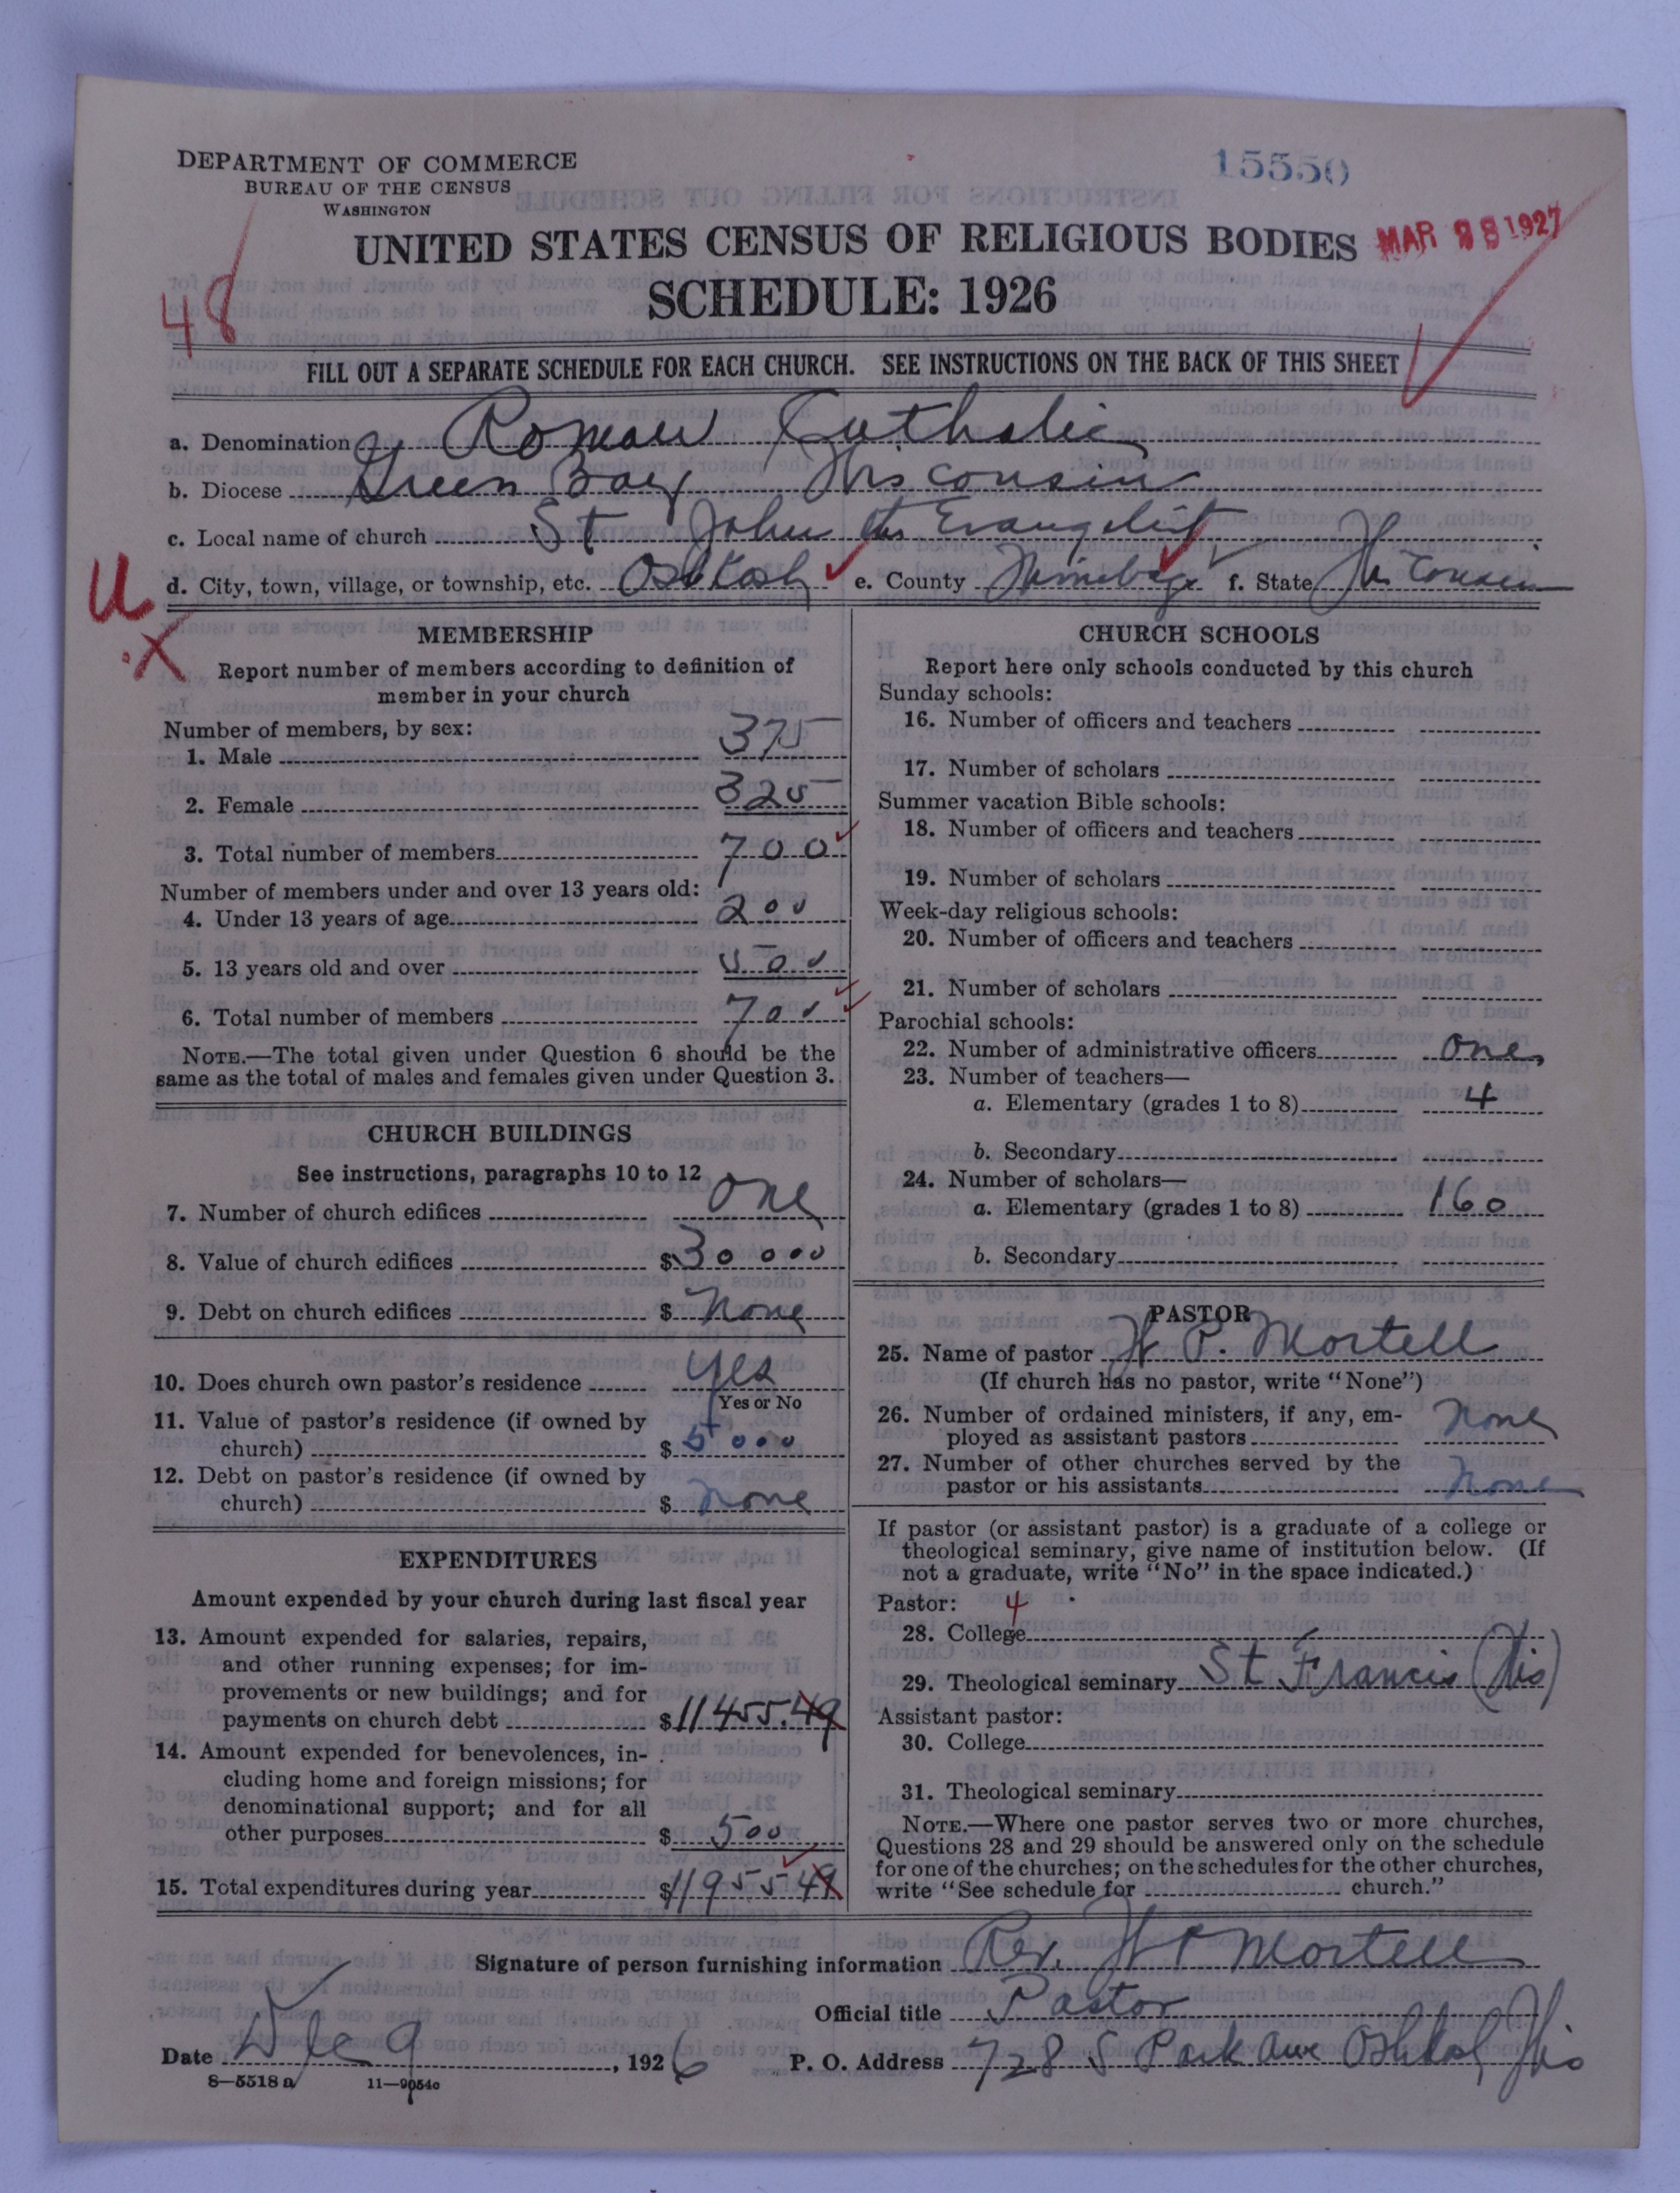 DEPARTMENT OF COMMERCE
BUREAU OF THE CENSUS
WASHINGTON
15550
UNITED STATES CENSUS OF RELIGIOUS BODIES
MAR 28 1927
SCHEDULE: 1926
48
FILL OUT A SEPARATE SCHEDULE FOR EACH CHURCH. SEE INSTRUCTIONS ON THE BACK OF THIS SHEET
a. Denomination Roman Catholic
b. Diocese Green Bay Wisconsin
c. Local name of church St John the Evangelist
d. City, town, village, or township, etc. Oshkosh e. County Winnebago f. State Wisconsin
U
X
MEMBERSHIP
Report number of members according to definition of
member in your church
Number of members, by sex:
1. Male 375
2. Female 325
3. Total number of members 700
Number of members under and over 13 years old:
4. Under 13 years of age 200
5. 13 years old and over 500
6. Total number of members 700
NOTE.—The total given under Question 6 should be the
same as the total of males and females given under Question 3.
CHURCH BUILDINGS
See instructions, paragraphs 10 to 12
7. Number of church edifices one
8. Value of church edifices $30000
9. Debt on church edifices $ None
10. Does church own pastor's residence yes
Yes or No
11. Value of pastor's residence (if owned by
church) $ 5000
12. Debt on pastor's residence (if owned by
church) $ none
EXPENDITURES
Amount expended by your church during last fiscal year
13. Amount expended for salaries, repairs,
and other running expenses; for im-
provements or new buildings; and for
payments on church debt $11455.49
14. Amount expended for benevolences, in-
cluding home and foreign missions; for
denominational support; and for all
other purposes $ 500
15. Total expenditures during year $11955 49
CHURCH SCHOOLS
Report here only schools conducted by this church
Sunday schools:
16. Number of officers and teachers
17. Number of scholars
Summer vacation Bible schools:
18. Number of officers and teachers
19. Number of scholars
Week-day religious schools:
20. Number of officers and teachers
21. Number of scholars
Parochial schools:
22. Number of administrative officers one
23. Number of teachers—
a. Elementary (grades 1 to 8) 4
b. Secondary
24. Number of scholars—
a. Elementary (grades 1 to 8) 160
b. Secondary
PASTOR
25. Name of pastor W P. Mortell
(If church has no pastor, write "None")
26. Number of ordained ministers, if any, em-
ployed as assistant pastors none
27. Number of other churches served by the
pastor or his assistants none
If pastor (or assistant pastor) is a graduate of a college or
theological seminary, give name of institution below. (If
not a graduate, write "No" in the space indicated.)
Pastor: 4
28. College
29. Theological seminary St Francis (Wis)
Assistant pastor:
30. College
31. Theological seminary
NOTE.—Where one pastor serves two or more churches,
Questions 28 and 29 should be answered only on the schedule
for one of the churches; on the schedules for the other churches,
write "See schedule for church."
Signature of person furnishing information Rev. W P Mortell
Official title Pastor
Date Dec 9, 1926 P. O. Address 728 S Park Ave Oshkosh Wis
8—5518 a 11—9054c